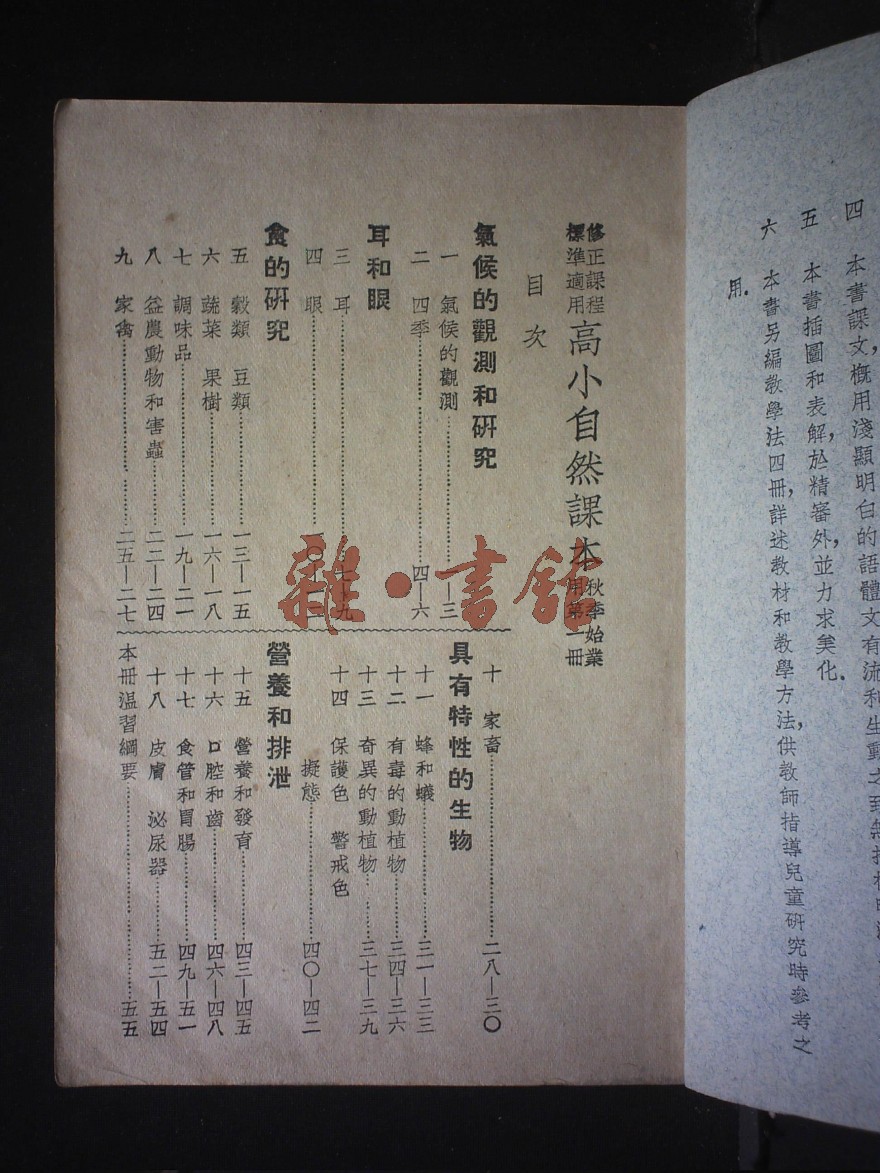 四　本書課文，概用淺顯明白的語體文有流利生動之
五　本書插圖和表解，於精審外，並力求美化．
六　本書另編教學法四冊，詳述教材和教學方法，供教師指導兒童研究時參考之
用．
修正課程
標準適用
高小自然課本
秋季始業
用第一冊
目次
氣候的觀測和研究
一　氣候的觀測……一—三
二　四季……四—六
耳和眼
三　耳……七—九
四　眼……一〇—一二
食的研究
五　穀類　豆類……一三—一五
六　蔬菜　果樹……一六—一八
七　調味品……一九—二一
八　益農動物和害蟲……二二—二四
九　家禽……二五—二七
十　家畜……二八—三〇
具有特性的生物
十一　蜂和蟻……三一—三三
十二　有毒的動植物……三四—三六
十三　奇異的動植物……三七—三九
十四　保護色　警戒色
擬態……四〇—四二
營養和排泄
十五　營養和發育……四三—四五
十六　口腔和齒……四六—四八
十七　食管和胃腸……四九—五一
十八　皮膚　泌尿器……五二—五四
本冊温習綱要……五五
雜·書館